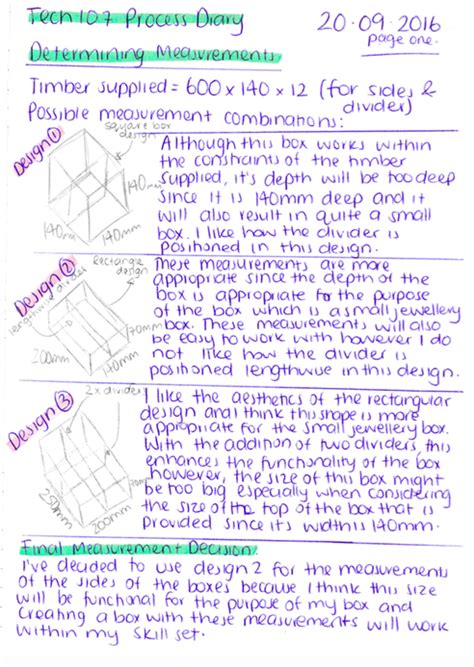 Tech 107 Process Diary
20.09.2016
page one.
Determining Measurements
Timber supplied = 600 x 140 x 12 (for sides &
divider)
Possible measurement combinations:
Design ①
square box
design
140mm
140mm
Although this box works within
the constraints of the timber
supplied, it's depth will be too deep
since it is 140mm deep and it
will also result in quite a small
box. I like how the divider is
positioned in this design.
Design ②
Rectangle
design
lengthwise divider
200mm
140mm
70mm
These measurements are more
appropriate since the depth of the
box is appropriate for the purpose
of the box which is a small jewellery
box. These measurements will also
be easy to work with however I do
not like how the divider is
positioned lengthwise in this design.
Design ③
2x divider
250mm
200mm
70mm
I like the aesthetics of the rectangular
design and I think this shape is more
appropriate for the small jewellery box.
With the addition of two dividers, this
enhances the functionality of the box
however, the size of this box might
be too big especially when considering
the size of the top of the box that is
provided since its width is 140mm.
Final Measurement Decision:
I've decided to use design 2 for the measurements
of the sides of the boxes because I think this size
will be functional for the purpose of my box and
creating a box with these measurements will work
within my skill set.